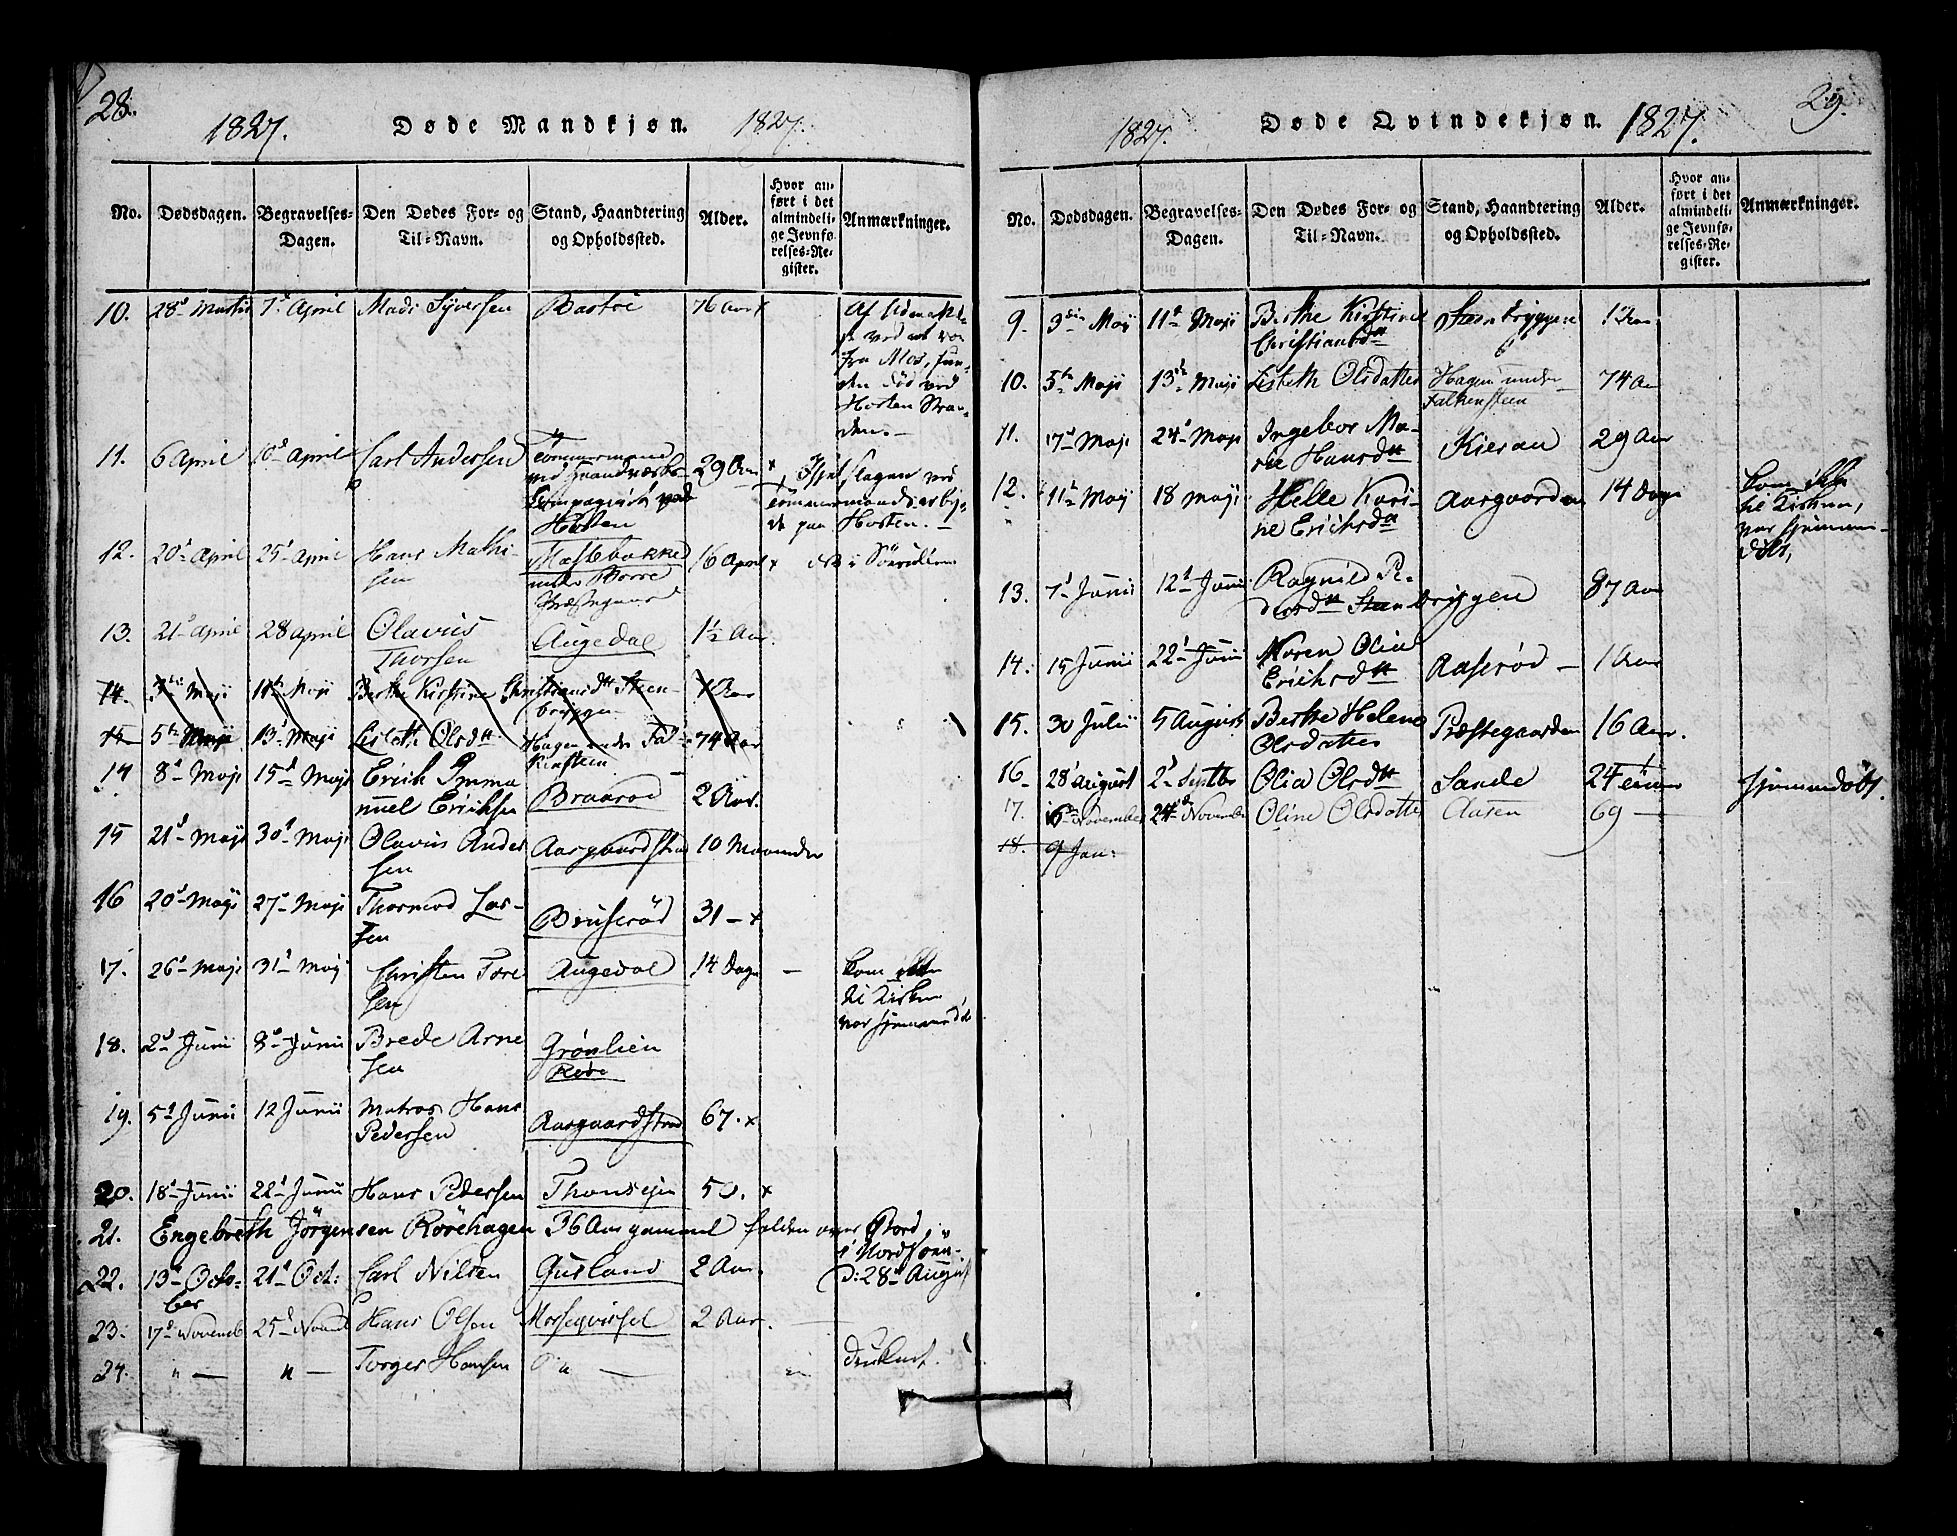 28.
1827. Døde Mandkjøn. 1827.
No. Dødsdagen. Begravelses-Dagen. Den Dødes For- og Til-Navn. Stand, Haandtering og Opholdssted. Alder. Hvor anført i det almindelige Jevnførelses-Register. Anmærkninger.
10. 28d Martii 1d April Mads Syversen Bastöe 76 Aar x
fra Mos, fun-
den död ved
Horten Stran-
den.
11. 6 April 10d April Carl Andersen Tömmermand
29 Aar x Ihjel slagen ved
Tömmermandsarbey-
de paa Horten.
Horten
12. 20d April 25d April Hans Mathi-
sen
under Borre
Præstegaard
16 x
13. 21d April 28 April Olavus
Thorsen Augedal 1½ Aar
14. 3die Maji 11te Maji Berthe Kirstine Christiansdtt Steen-
bryggen 1 Aar
15 5te Maji 13d Maji Lisbeth Olsdtt Hagen under Fal-
kensteen 74 Aar
14 8d Maji 15d Maji Erich Emma
nuel Erichsen Braarød 2 Aar.
15 21d Maji 30d Maji Olavus Ander
sen Aasgaardstrand 10 Maaneder
16 20d Maji 27d Maji Thormod Lar-
sen Bruserød 31 – x
17. 26d Maji 31d Maji Christen Tore
sen Augedal 14 Dage – kom ikke
til Kirken
var hjemmed
18. 2d Junii 8d Junii Brede Arne
sen Grönlien
19. 5d Junii 12 Junii Matros Hans
Pedersen Aasgaardstrand 67. x
20. 18d Junii 22d Junii Hans Pedersen 50. x
21. Engebreth Jörgensen Rörehagen 36 Aar gammel falden over Bord
i Nordsöen.
d: 28d August
22. 13d Octo-
ber 21d Oct: Carl Nilsen Gusland 2 Aar.
23. 17d Novemb 25d Novemb Hans Olsen 2 Aar.
24. " — " — Torger Hansen " — druknet.
29.
1827. Døde Qvindekjøn. 1827.
No. Dødsdagen. Begravelses-Dagen. Den Dødes For- og Til-Navn. Stand, Haandtering og Opholdssted. Alder. Hvor anført i det almindelige Jevnførelses-Register. Anmærkninger.
9. 3die Maji 11d Maji Berthe Kirstine
Christiansdtt Steenbryggen 1 Aar
10. 5te Maji 13de Maji Lisbeth Olsdatter Hagen under
Falkensteen 74 Aar
11. 17d Maji 24d Maji Ingebor Ma-
rie Hansdtt 29 Aar
12. 11te Maji 18 Maji Helle Kari-
ne Erichsdtt Aasgaarden 14 Dage kom ikke
til Kirken,
var hjemme-
döbt,
13. 7d Junii 12d Junii Ragnild Pe-
dersdtt Steenbryggen 87 Aar
14. 15 Junii 22d Junii Maren Olia
Erichsdtt Aaserød – 1 Aar
15. 30 Julii 5 August Berthe Helene
Olsdatter Præstegaarden 16 Aar.
16 28d August 2d Septbr Olia Olsdtt Sande 24 Timer hjemmedöbt.
17. 16 November 24d November Oline Olsdatter Aasen 69 —
18. 9 Jan: